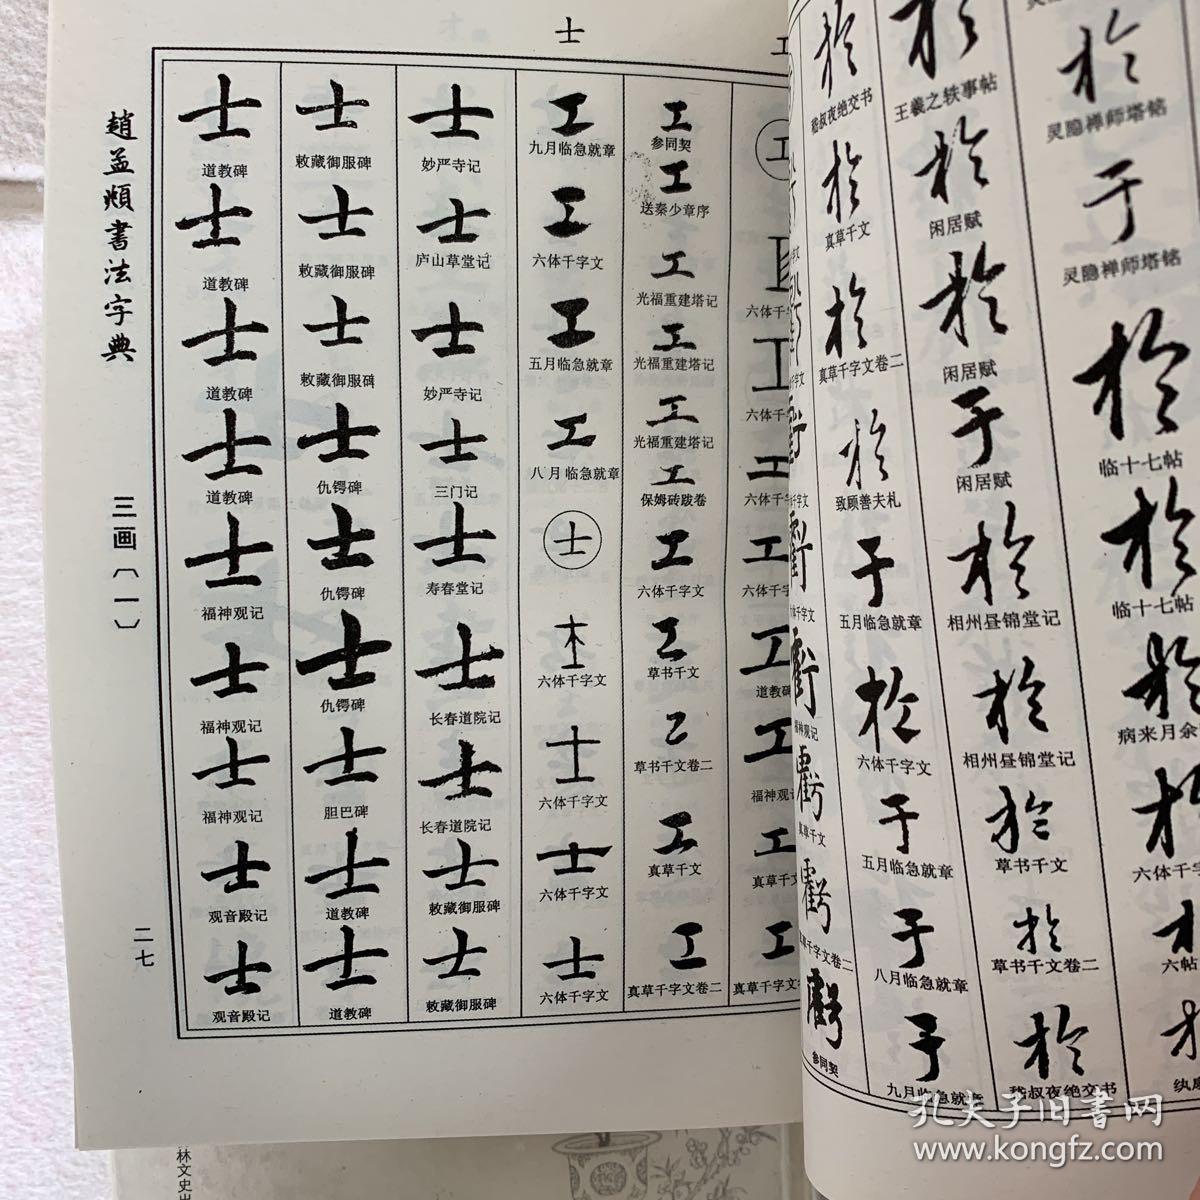 士
工
工
士
趙孟頫書法字典
三画〔一〕
二七
士
道教碑
士
道教碑
士
道教碑
士
道教碑
士
福神观记
士
福神观记
士
福神观记
士
观音殿记
士
观音殿记
士
敕藏御服碑
士
敕藏御服碑
士
敕藏御服碑
士
仇锷碑
士
仇锷碑
士
仇锷碑
士
胆巴碑
士
道教碑
士
道教碑
士
妙严寺记
士
庐山草堂记
士
妙严寺记
士
三门记
士
寿春堂记
士
长春道院记
士
长春道院记
士
敕藏御服碑
士
敕藏御服碑
工
九月临急就章
工
六体千字文
工
五月临急就章
工
八月临急就章
六体千字文
士
六体千字文
士
六体千字文
士
六体千字文
工
参同契
工
送秦少章序
工
光福重建塔记
工
光福重建塔记
工
光福重建塔记
工
保姆砖跋卷
工
六体千字文
工
草书千文
工
草书千文卷二
工
真草千文
工
真草千字文卷二
六体千
工
六体千
工
六体千
工
六体千
工
道教碑
工
福神观
工
真草千
工
真草千字文
虧
福神观记
虧
真草千文
虧
真草千字文卷二
虧
参同契
於
嵇叔夜绝交书
於
真草千文
於
真草千字文卷二
於
致顾善夫札
于
五月临急就章
於
六体千字文
于
五月临急就章
于
八月临急就章
于
九月临急就章
於
王羲之轶事帖
於
闲居赋
於
闲居赋
于
闲居赋
於
相州昼锦堂记
於
相州昼锦堂记
於
草书千文
於
草书千文卷二
於
嵇叔夜绝交书
於
灵隐禅师塔铭
于
灵隐禅师塔铭
於
临十七帖
於
临十七帖
於
病来月余
於
六体千字
六帖
孔夫子旧书网
www.kongfz.com
林文史出